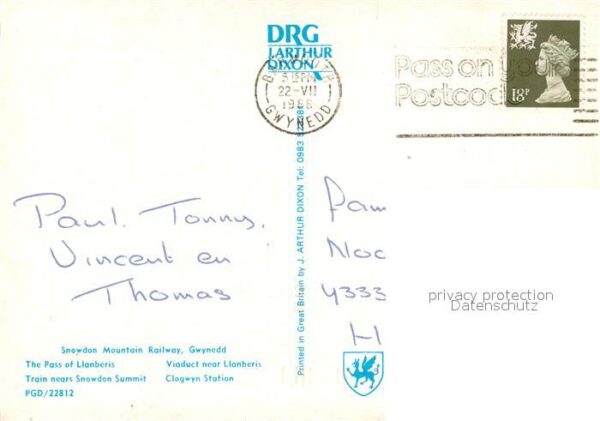 DRG
J.ARTHUR
DIXON
5 15 PM
22-VII
1988
GWYNEDD
Pass on your
Postcode
18P
Paul. Tonny,
Vincent en
Thomas
Fam
4333
H
privacy protection
Datenschutz
Printed in Great Britain by J. ARTHUR DIXON Tel: 0983
Snowdon Mountain Railway, Gwynedd
The Pass of Llanberis Viaduct near Llanberis
Train nears Snowdon Summit Clogwyn Station
PGD/22812